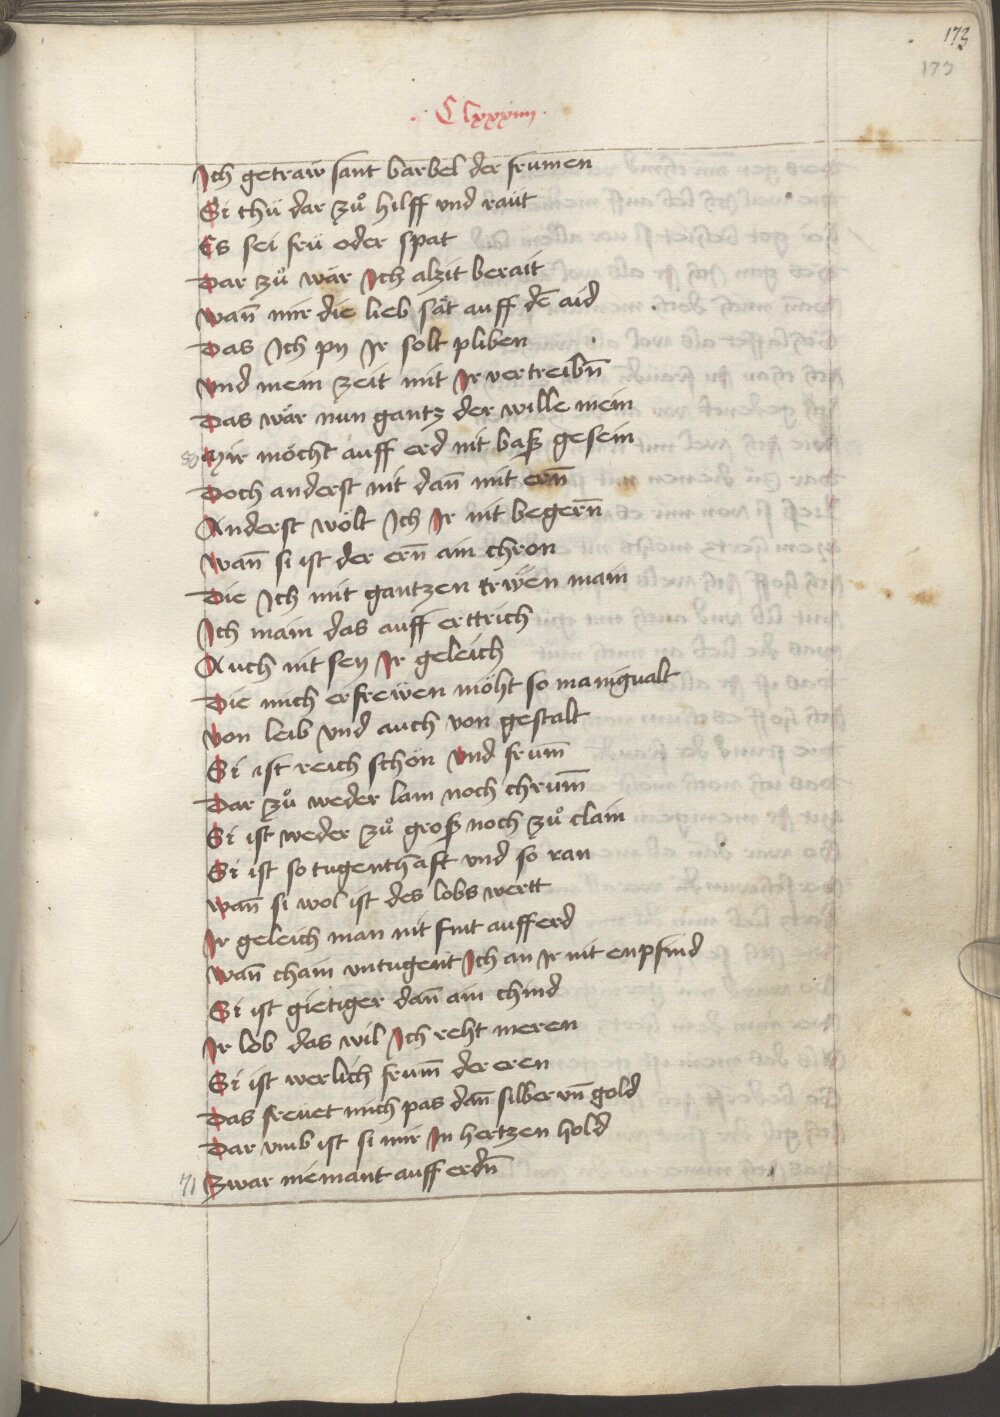 173
173
· Clxxxiiii ·
Ich getraw̄ sant barbel der frumen
Si thü dar zuͦ hilff vnd raüt
Es sei frü oder spat
Dar zuͦ wär Ich alzit berait
wan̄ mir die lieb sät auff dē aid
Das Ich py Ir solt pliben
vnd mein zeit mit Ir vertreibn̄
Das wär nun gantz der wille mein
Mir möcht auff erd nit baß gesein
Doch anderst nit dan̄ mit ern̄
Anderst wölt Ich Ir nit begern̄
wan̄ si ist der ern̄ ain chron
Die Ich mit gantzen trẅen main
Ich main das auff erttrich
Auch nit sey Ir geleich
Die mich erfreẅen möht so manigualt
von leib vnd auch von gestalt
Si ist reich schön vnd frum̄
Dar zuͦ weder lam noch chrum̄
Si ist weder zuͦ groß noch zuͦ clain
Si ist so tugenthaft vnd so ran
wan̄ si wol ist des lobs wertt
Ir geleich man nit fint auff erd
wan̄ chain vntugent Ich an Ir nit enpfind
Si ist gietiger dan̄ ain chind
Ir lob das wil Ich reht meren
Si ist werlich frum̄ der eren
Das freüet mich pas dan̄ silber vn̄ gold
Dar vmb ist si mir In hertzen hold
71 Zwar niemant auff erdn̄